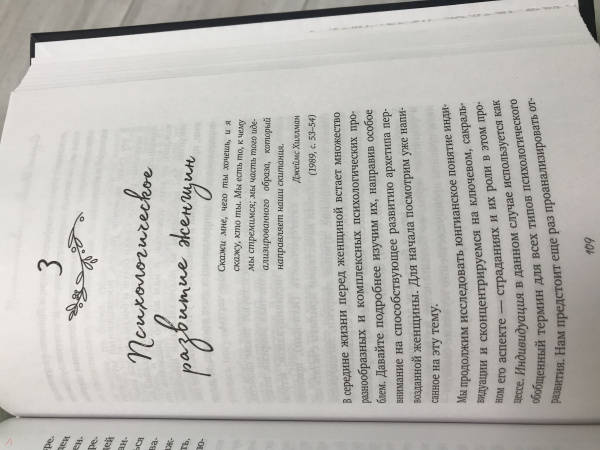 3
Психологическое
развитие женщин
Скажи мне, чего ты хочешь, и я
скажу, кто ты. Мы есть то, к чему
мы стремимся; мы часть того иде-
ализированного образа, который
направляет наши скитания.
Джеймс Хиллман
(1989, с. 53–54)
В середине жизни перед женщиной встает множество
разнообразных и комплексных психологических про-
блем. Давайте подробнее изучим их, направив особое
внимание на способствующее развитию архетипа пер-
возданной женщины. Для начала посмотрим уже напи-
санное на эту тему.
Мы продолжим исследовать юнгианское понятие инди-
видуации и сконцентрируемся на ключевом, сакраль-
ном его аспекте — страданиях и их роли в этом про-
цессе. Индивидуация в данном случае используется как
обобщенный термин для всех типов психологического
развития. Нам предстоит еще раз проанализировать от-
109